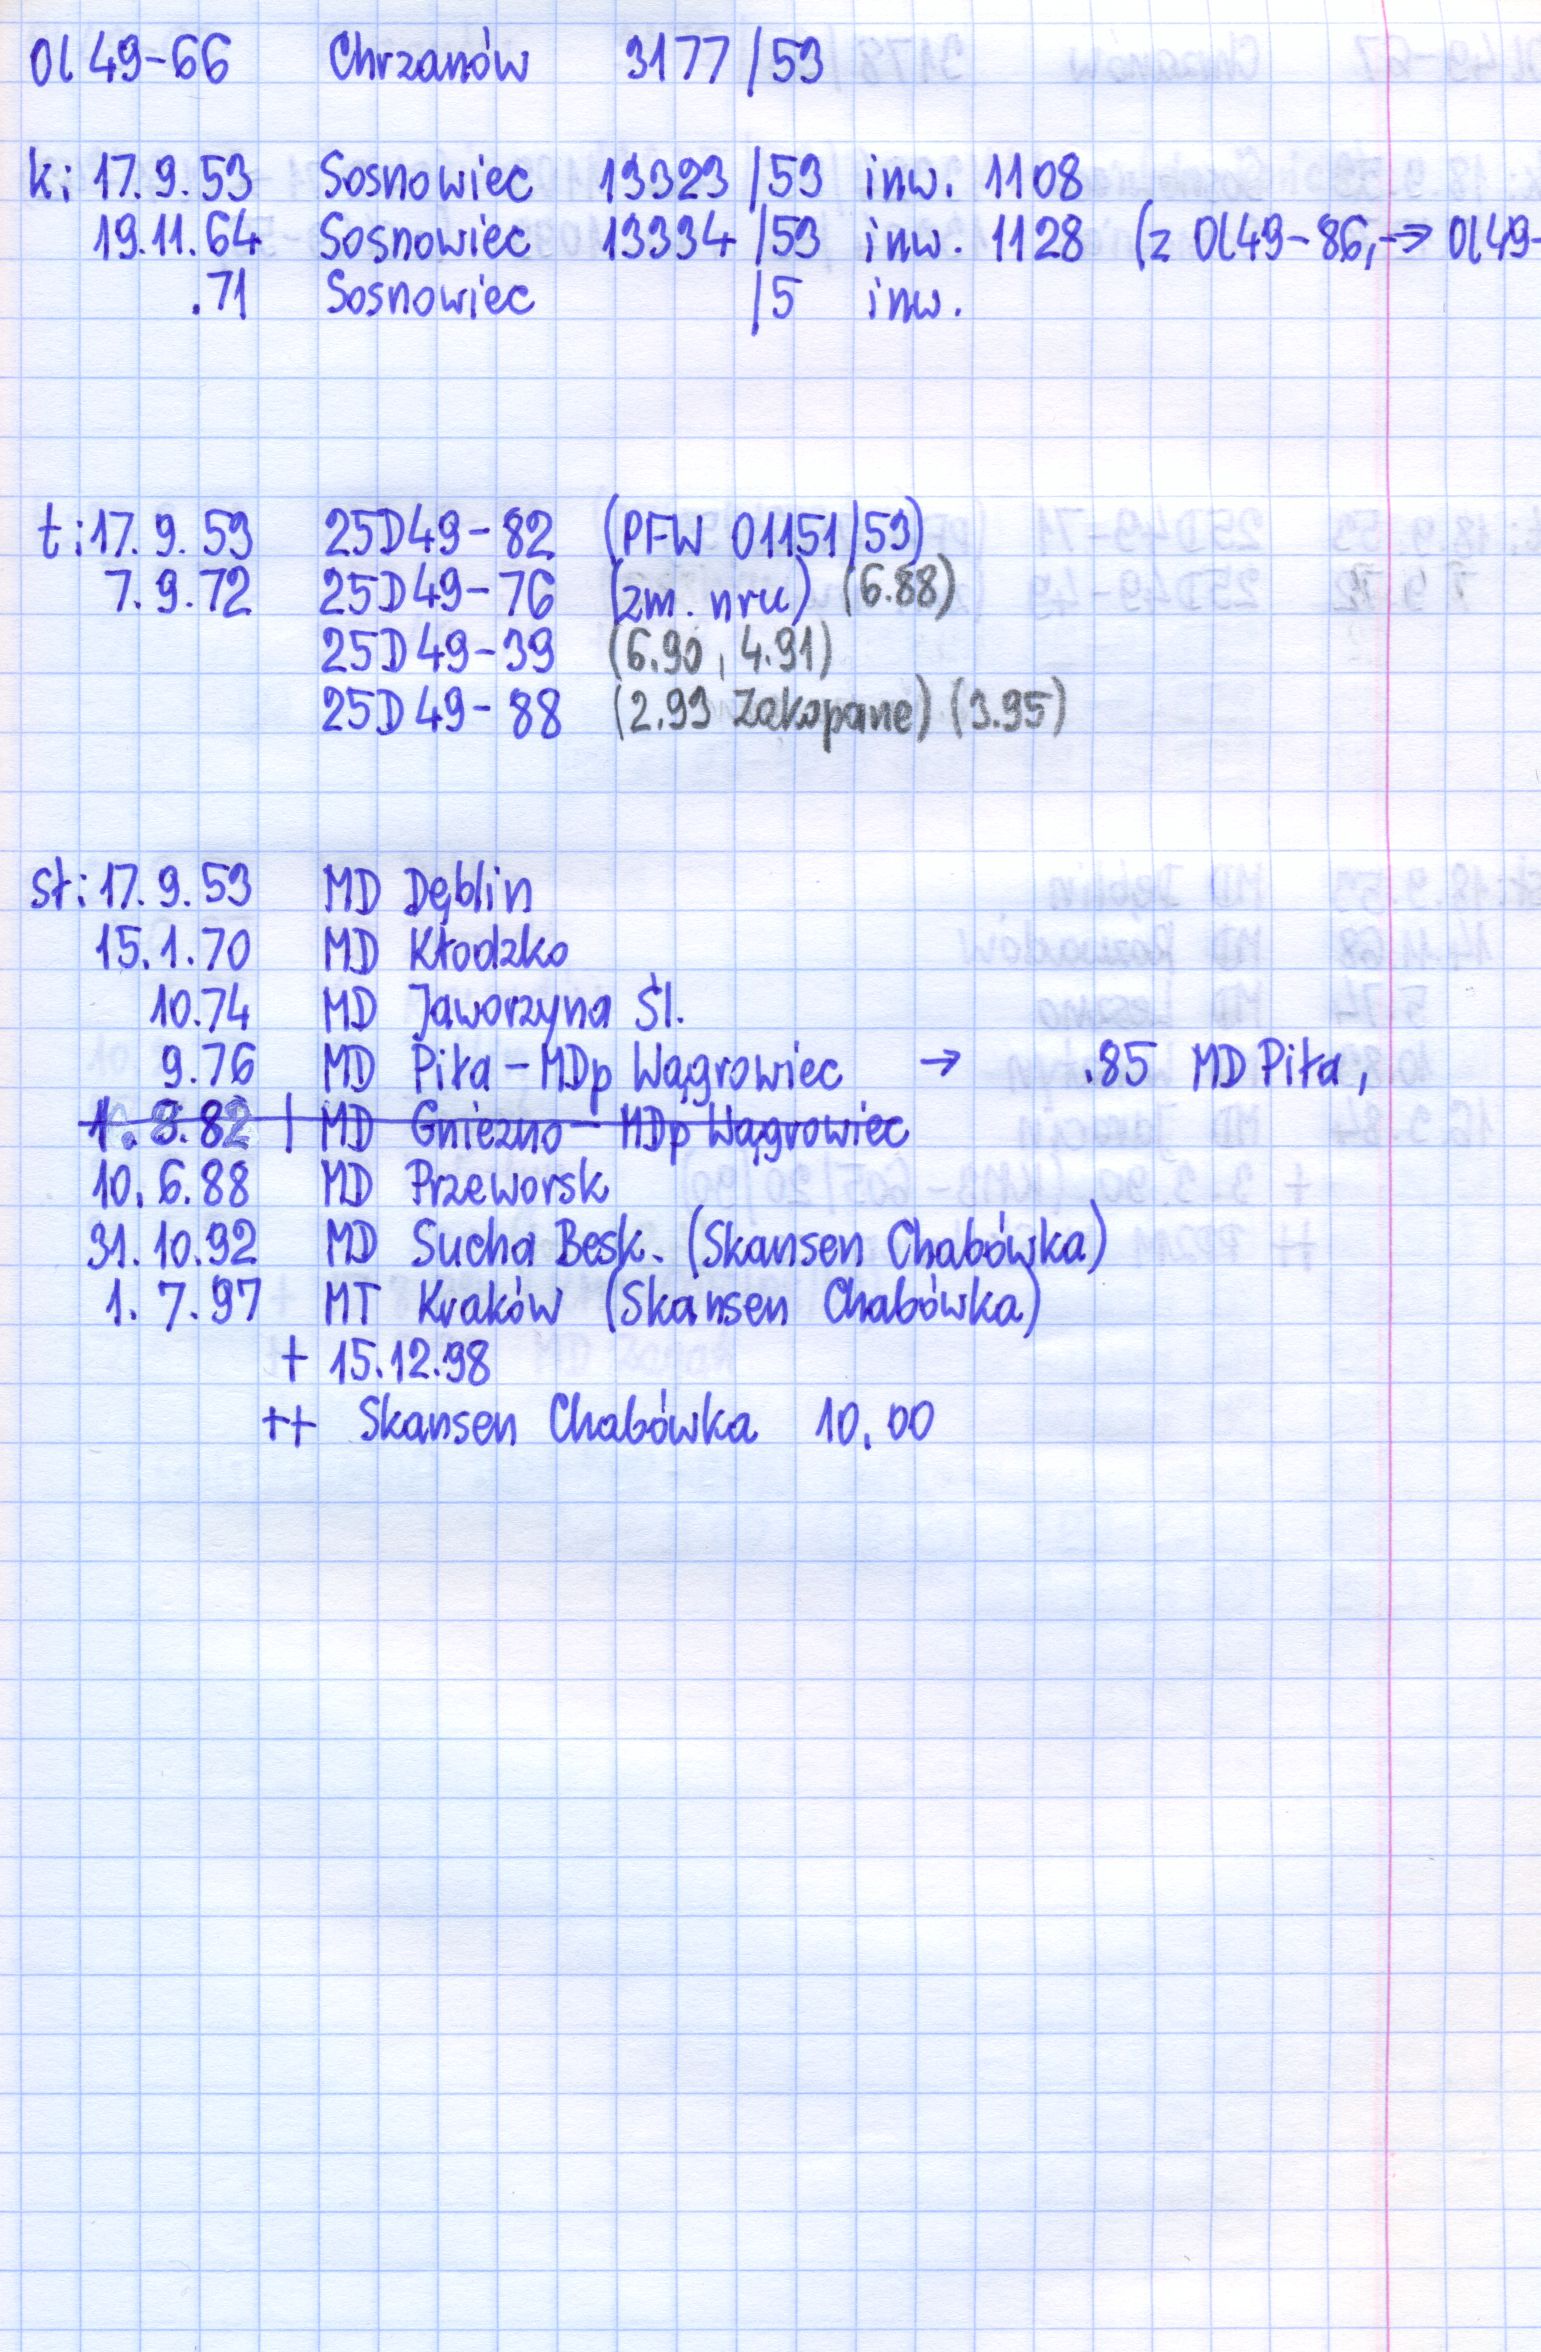 Ol 49-66 Chrzanów 3177/53
k: 17.9.53 Sosnowiec 13323/53 inw. 1108
19.11.64 Sosnowiec 13334/53 inw. 1128 (z Ol49-86, → Ol49-
.71 Sosnowiec /5 inw.
t: 17.9.53 25D49-82 (PFW 01151/53)
7.9.72 25D49-76 (zm. nru) (6.88)
25D49-39 (6.90, 4.91)
25D49-88 (2.93 Zakopane) (3.95)
st: 17.9.53 MD Dęblin
15.1.70 MD Kłodzko
10.74 MD Jaworzyna Śl.
9.76 MD Piła - MDp Wągrowiec → .85 MD Piła,
1.9.82 | MD Gniezno - MDp Wągrowiec
10.6.88 MD Przeworsk
31.10.92 MD Sucha Besk. (Skansen Chabówka)
1.7.97 MT Kraków (Skansen Chabówka)
+ 15.12.98
++ Skansen Chabówka 10.00